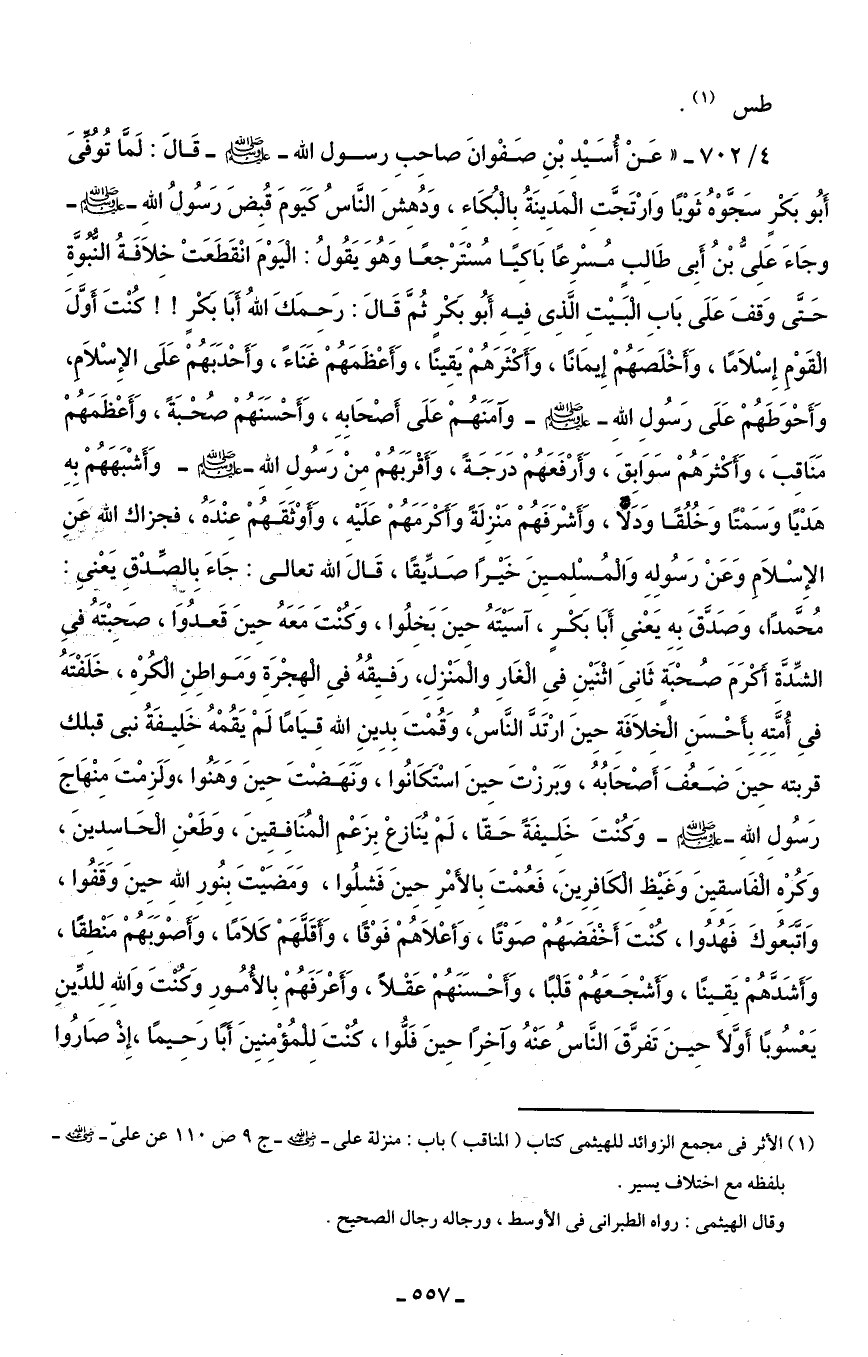 طس (١) .
٤/ ٧٠٢ ـ « عَنْ أُسَيْدِ بْنِ صَفْوانَ صاحبِ رسول الله ـ ﷺ ـ قَالَ : لَمَّا تُوُفِّىَ
أَبُو بَكْرٍ سَجَّوْهُ ثَوْبًا وَارْتَجَّتِ الْمَدينَةُ بِالْبُكَاءِ ، وَدُهِشَ النَّاسُ كَيَوْمَ قُبِضَ رَسُولُ الله ـ ﷺ ـ
وجَاءَ عَلِىُّ بْنُ أَبى طَالِبٍ مُسْرِعًا بَاكِيًا مُسْتَرْجِعًا وَهُوَ يَقُولُ : الْيَوْمَ انْقَطَعَتْ خِلاَفَةُ النُّبُوَّةِ
حَتَّى وَقَفَ عَلَى بَابِ الْبَيْتِ الَّذِى فِيهِ أَبُو بَكْرٍ ثُمَّ قَالَ : رَحِمَكَ اللهُ أَبَا بَكْرٍ ! ! كُنْتَ أَوَّلَ
الْقَوْمِ إِسْلاَمًا ، وَأَخْلَصَهُمْ إِيمَانًا ، وَأَكْثَرَهُمْ يَقِينًا ، وَأَعْظَمَهُمْ غَنَاءً ، وَأَحْدَبَهُمْ عَلَى الإِسْلاَمِ،
وَأَحْوَطَهُمْ عَلَى رَسُولِ الله ـ ﷺ ـ وآمَنَهُمْ عَلَى أَصْحَابِهِ ، وَأَحْسَنَهُمْ صُحْبَةً ، وَأَعْظَمَهُمْ
مَنَاقِبَ ، وَأَكْثَرَهُمْ سَوَابِقَ ، وَأَرْفَعَهُمْ دَرَجَةً ، وَأَقْرَبَهُمْ مِنْ رَسُولِ الله ـ ﷺ ـ وَأَشْبَهَهُمْ بِهِ
هَدْيًا وَسَمْتًا وَخُلُقًا وَدَلاً ، وَأَشْرَفَهُمْ مَنْزِلَةً وَأَكْرَمَهُمْ عَلَيْهِ ، وَأَوْثَقَهُمْ عِنْدَهُ ، فجزاك الله عَنِ
الإِسْلاَمِ وَعَنْ رَسُولِهِ وَالْمُسْلِمِينَ خَيْرًا صَدِّيقًا ، قَالَ الله تعالى : جَاءَ بِالصِّدْقِ يَعْنِى :
مُحَمَّدًا، وَصَدَّقَ بِهِ يَعْنِى أَبَا بَكْرٍ ، آسَيْتَهُ حِينَ بَخِلُوا ، وَكُنْتَ مَعَهُ حِينَ قَعَدُوا ، صَحِبْتَهُ فِى
الشِّدَّةِ أَكْرَمَ صُحْبَةٍ ثَانِىَ اثْنَيْنِ فِى الْغَارِ والْمَنْزِلِ، رَفِيقُهُ فِى الْهِجْرَةِ وَمَواطِنِ الْكُرْهِ ، خَلَفْتَهُ
فِى أُمَّتِهِ بِأَحْسَنِ الْخِلاَفَةِ حِينَ ارْتَدَّ النَّاسُ، وَقُمْتَ بِدِينِ الله قِيَامًا لَمْ يَقُمْهُ خَلِيفَةُ نبى قبلك
قربته حينَ ضَعُفَ أَصْحَابُهُ ، وَبَرَزْتَ حِينَ اسْتَكَانُوا ، وَنَهَضْتَ حِينَ وَهَنُوا ،ولَزِمْتَ مِنْهَاجَ
رَسُولِ الله ـ ﷺ ـ وَكُنْتَ خَلِيفَةً حَقّا ، لَمْ يُنَازِعْ بِزَعْمِ الْمُنَافِقِينَ ، وَطَعْنِ الْحَاسِدِينَ ،
وَكُرْهِ الْفَاسِقِينَ وَغَيْظِ الكَافِرِينَ، فَعُمْتَ بِالأَمْرِ حِينَ فَشِلُوا ، وَمَضَيْتَ بِنُورِ اللهِ حِينَ وَقَفُوا ،
وَاتَّبَعُوكَ فَهُدُوا ، كُنْتَ أَخْفَضَهُمْ صَوْتًا ، وَأَعْلاَهُمْ فَوْقًا ، وَأَقَلَّهَمْ كَلاَمًا ، وَأَصْوَبَهُمْ مَنْطِقًا ،
وَأَشَدَّهُمْ يَقِينًا ، وَأَشْجَعَهُمْ قَلْبًا ، وَأَحْسَنَهُمْ عَقْلاً ، وَأَعْرَفَهُمْ بِالأُمُورِ وَكُنْتَ وَاللهِ لِلدِّينِ
يَعْسُوبًا أَوَّلاً حِينَ تَفَرَّقَ النَّاسُ عَنْهُ وَآخِرًا حِينَ فَلُّوا ، كُنْتَ لِلْمُؤْمِنِينَ أَبًا رَحِيمًا ،إِذْ صَارُوا
(١) الأثر فى مجمع الزوائد للهيثمى كتاب ( المناقب ) باب : منزلة على ـ رضي الله عنه ـ ج ٩ ص ١١٠ عن علىّ ـ رضي الله عنه ـ
بلفظه مع اختلاف يسير .
وقال الهيثمى : رواه الطبرانى فى الأوسط ، ورجاله رجال الصحيح .
ـ ٥٥٧ ـ